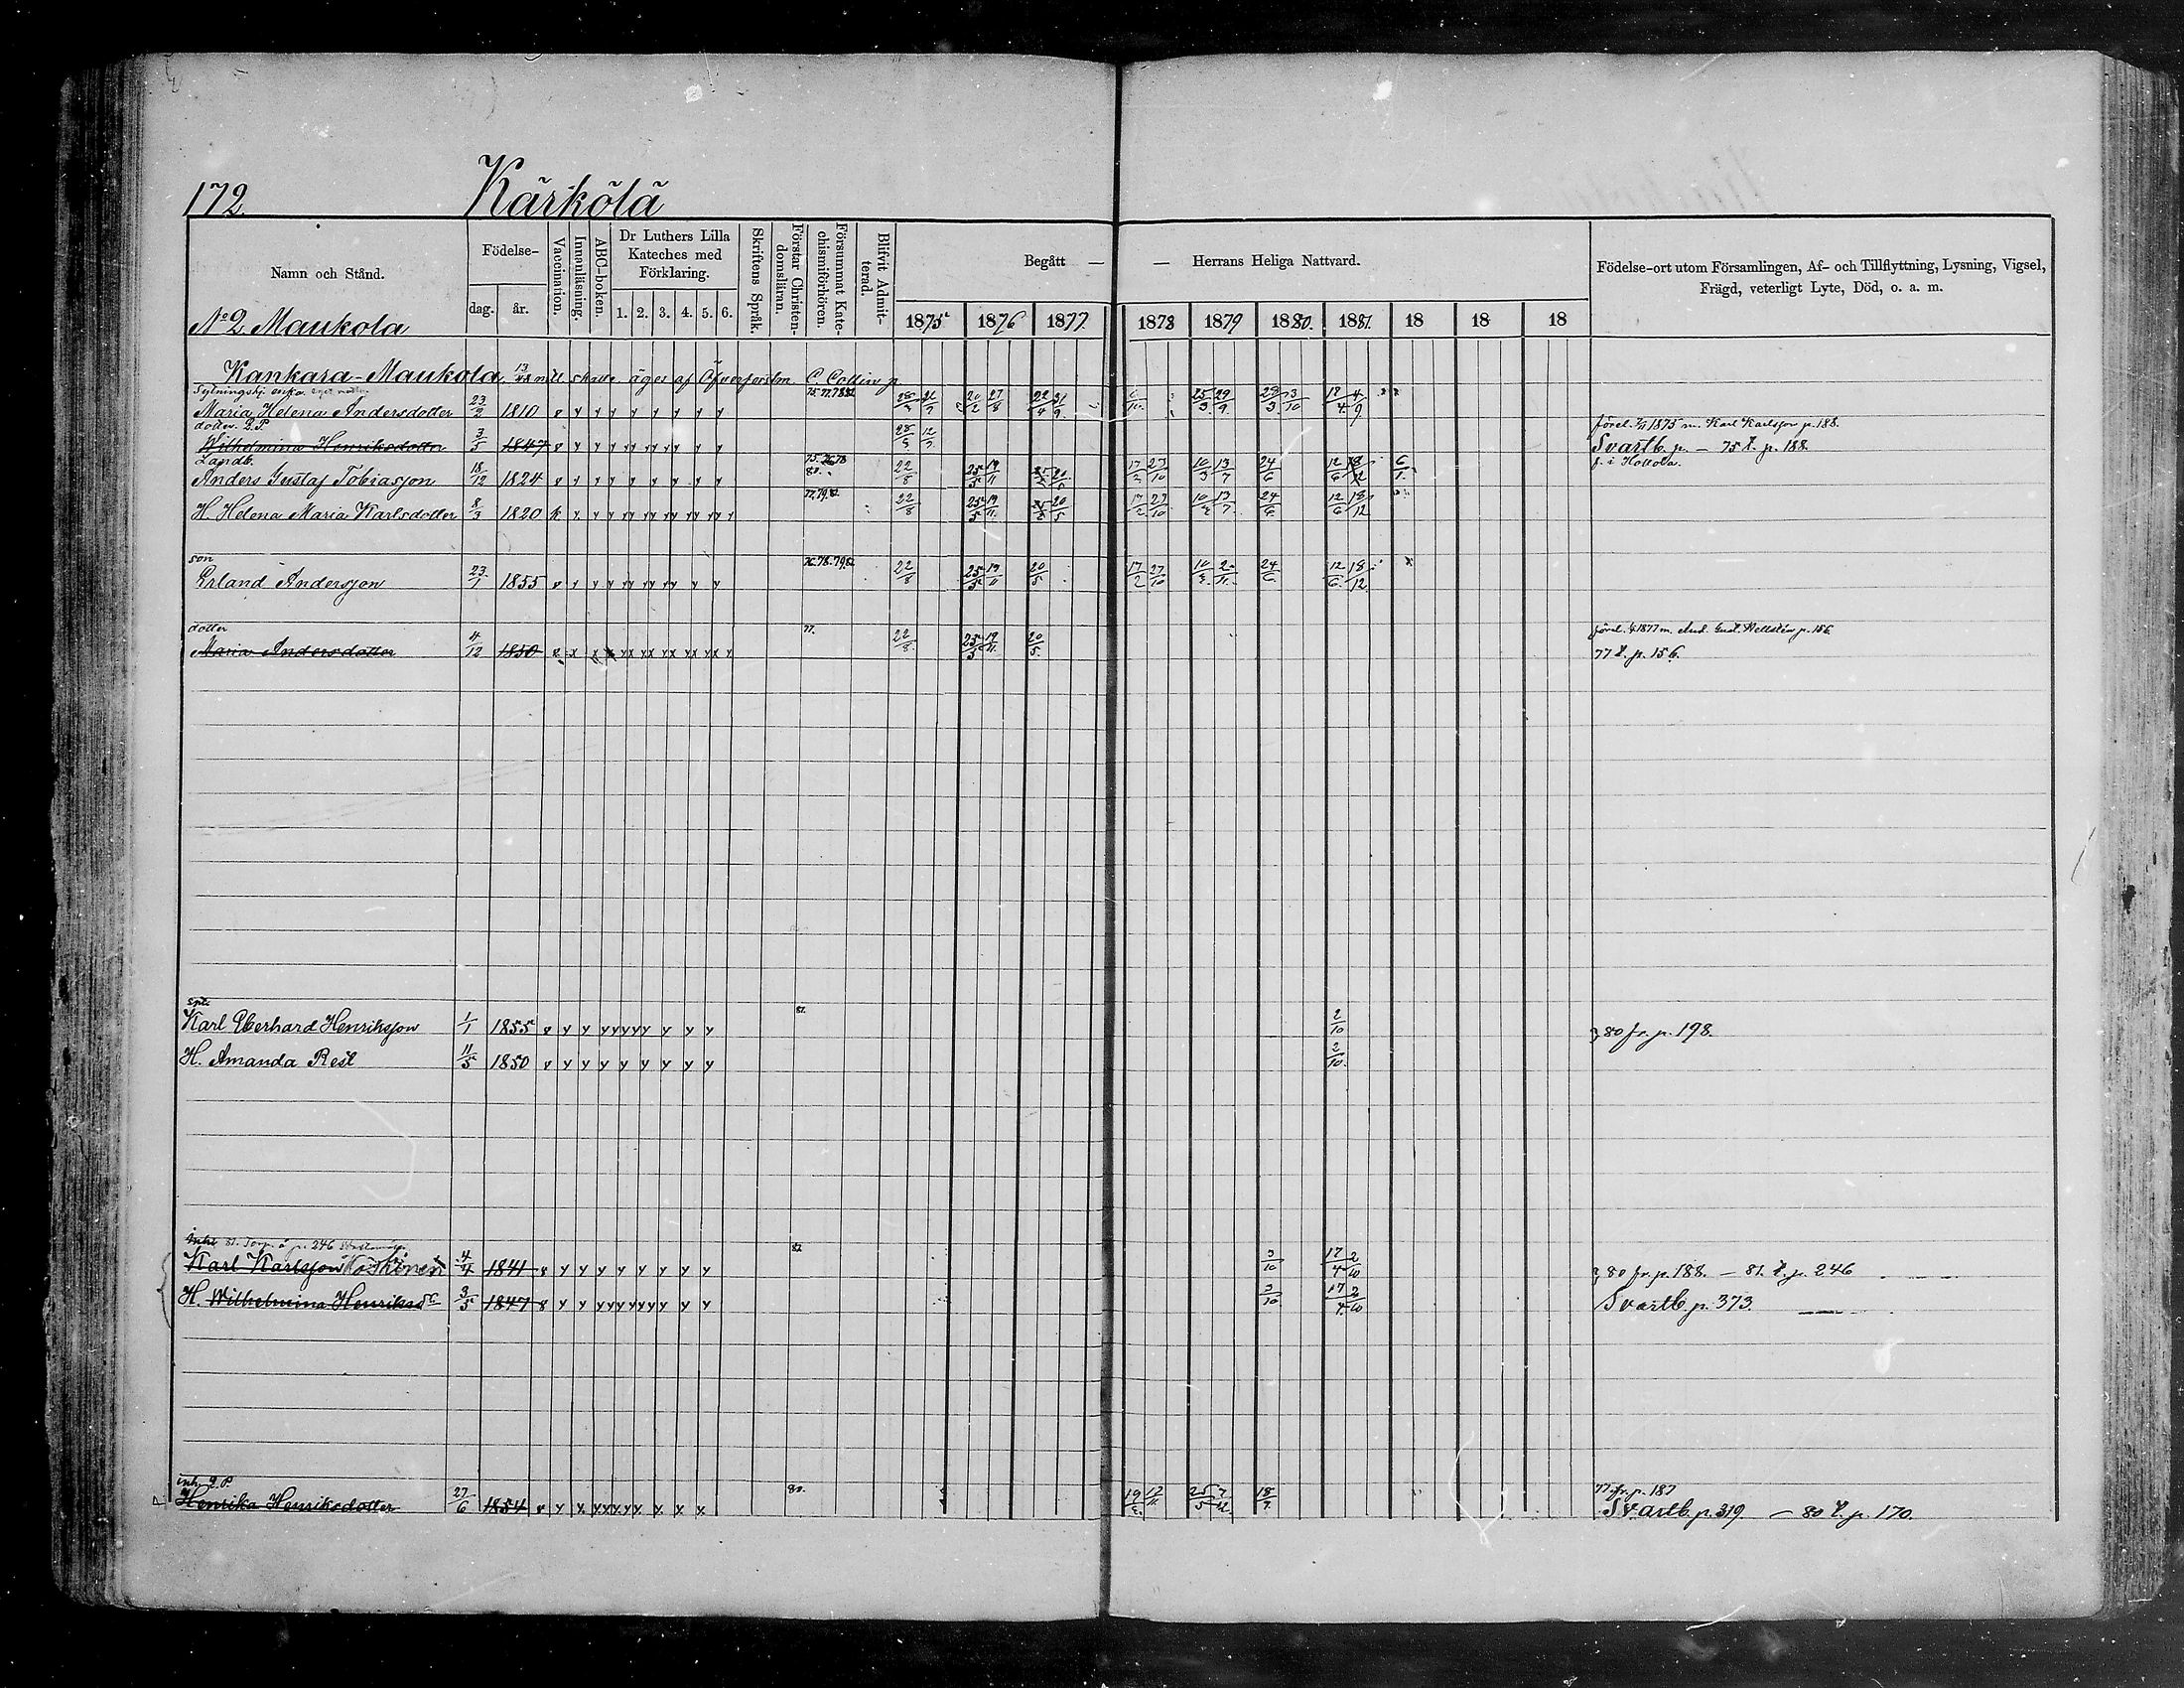 172. Kärkölä
Namn och Stånd.
Födelse-
dag.
år.
Vaccination.
Innanläsning.
ABC-boken.
Dr Luthers Lilla
Kateches med
Förklaring.
1. 2. 3. 4. 5. 6.
Skriftens Språk.
Förstår Christen-
domsläran.
Försummat Kate-
chismiförhören.
Blifvit Admit-
terad.
Begått — — Herrans Heliga Nattvard.
1875 1876 1877 1878 1879 1880. 1881. 18 18 18
Födelse-ort utom Församlingen, Af- och Tillflyttning, Lysning, Vigsel,
Frägd, veterligt Lyte, Död, o. a. m.
No 2 Maukola
Kankara-Maukola, skatte äges af C. Collin
enka
Maria Helena Andersdotter 23/2 1810 v y y y y y y y y 28/3 20/2 27/8 22/4 25/3 29/9 28/3 3/10 18/4 4/9
dotter Q.P.
Wilhelmina Henriksdotter 3/5 1847 v y y y yy yy y y y 12/7 förel. 1875 m. Karl Karlsson p. 188.
Svartb. p. — 75 t. p. 188.
Landb.
Anders Gustaf Tobiasson 18/12 1824 v y y y y y y y y 75. 76. 78 80. 22/8 25/5 19/11 17/2 27/10 10/3 13/7 24/6 12/6 6/1 f. i Hollola.
H Helena Maria Karlsdotter 8/3 1820 77. 79. 22/8 25/5 19/11 20/5 17/2 27/10 13/7 24/6 12/6 18/12
son
Erland Andersson 23/1 1855 v y y y yy yy yy y y 76. 78. 79. 22/8 25/5 19/11 20/5 17/2 27/10 24/6 12/6 18/12
dotter
Maria Andersdotter 4/12 1850 77. 22/8 25/5 19/11 20/5 förel. 1877 m. And. Gust. Hellstén p. 156
77 t. p. 156.
Karl Eberhard Henriksson 1/1 1855 v y y yy yy y y y y 81. 2/10 80 fr. p. 198.
H. Amanda Rest 11/5 1850 v y y y y y y y y 2/10
81. Torp. å p. 246
Karl Karlsson Koskinen 4/4 1841 v y y y y y y y y 3/10 17/4 2/10 80 fr. p. 188. — 81. t. p. 246
H. Wilhelmina Henriksd 3/5 1847 v y y yy yy yy y y y 3/10 17/4 2/10 Svartb. p. 373.
inh. Q.P.
Henrika Henriksdotter 27/6 1854 80. 18/7 77 fr. p. 187
Svartb. p. 319 — 80 t. p. 170.